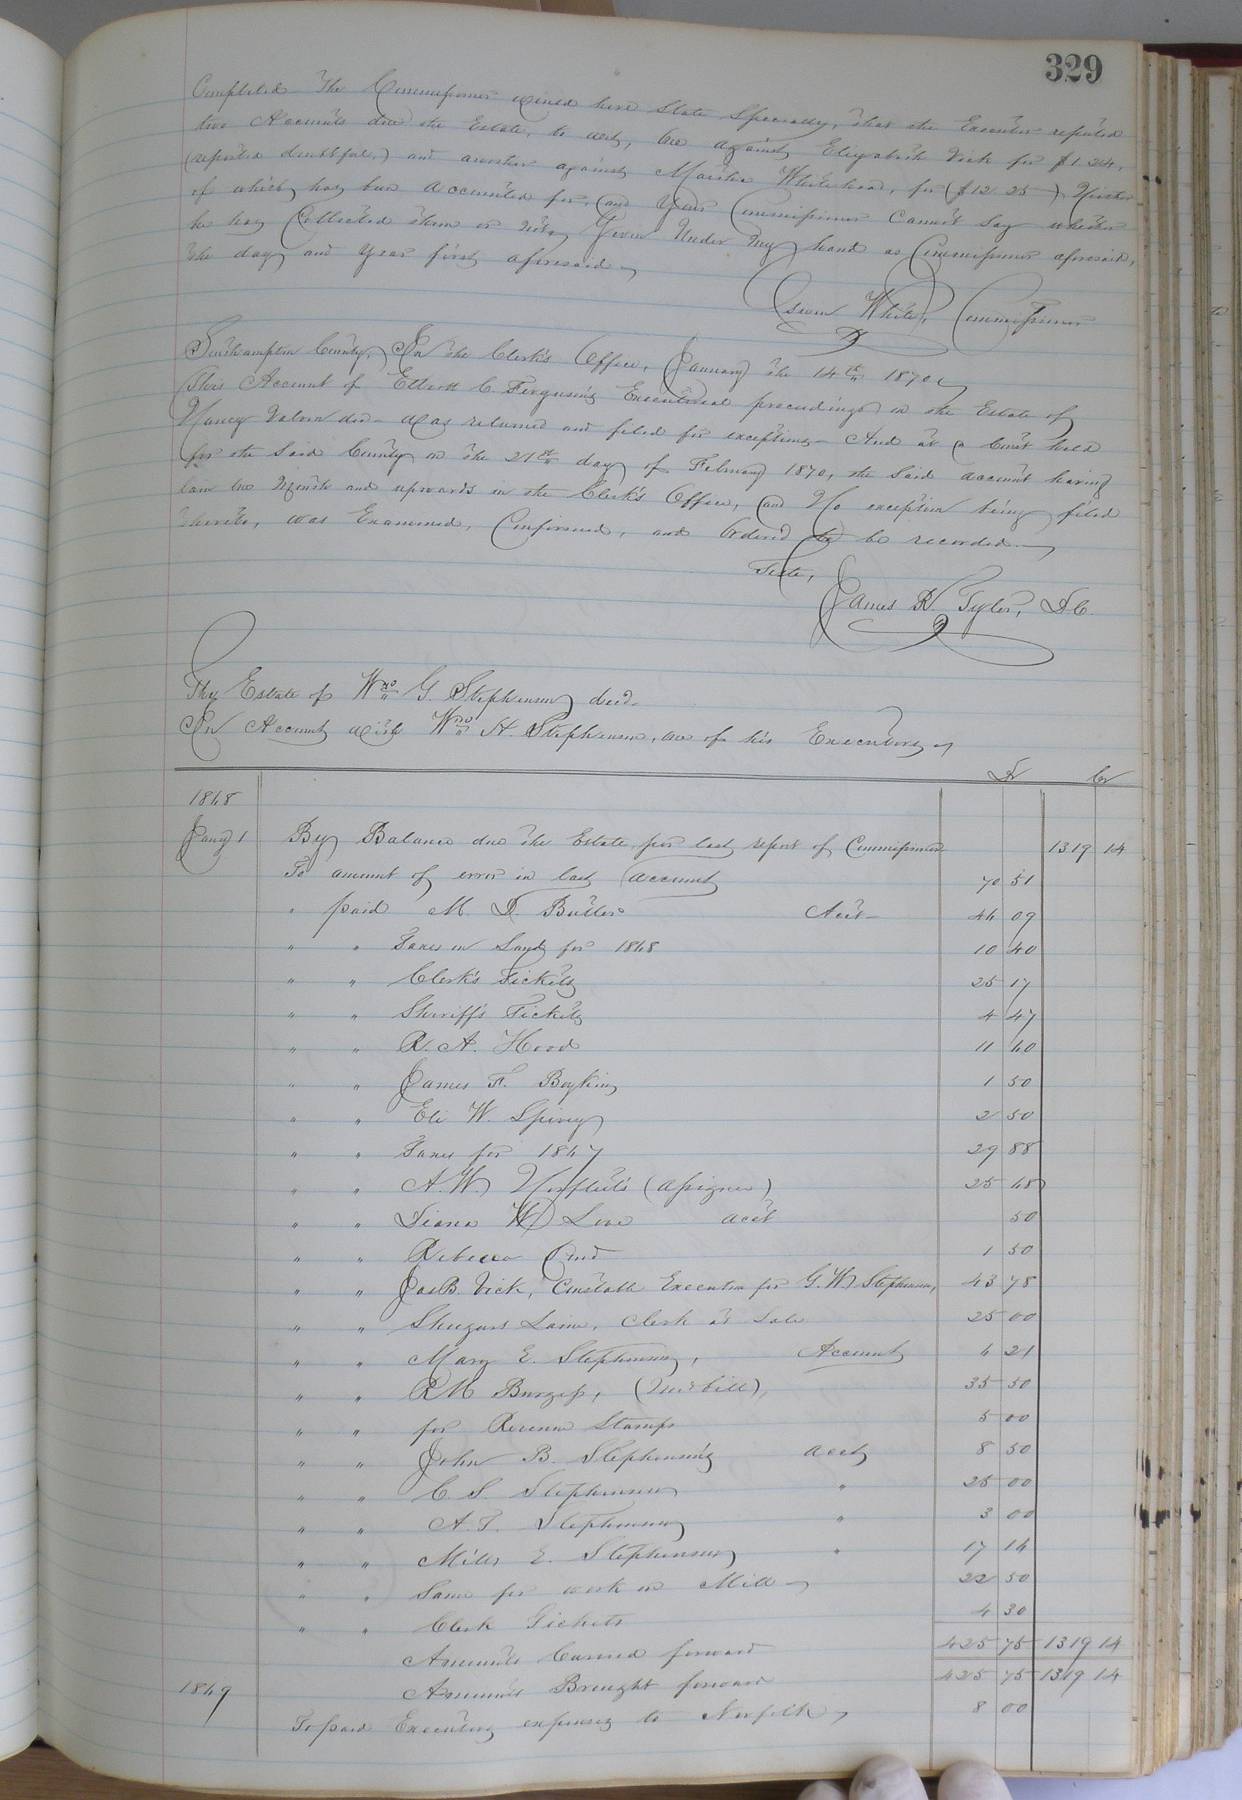 329
Completed The Commissioner would here State Specially, that the Executor reported
two Accounts due the Estate, to wit, One against Elizabeth Vick for $1.24,
(reported doubtful,) and another against Martha Whitehead, for ($12.25) Neither
of which has been Accounted for, and Your Commissioner Cannot Say whether
he has Collected them or not. Given Under My hand as Commissioner aforesaid,
the day and Year first aforesaid.
White, Commissioner
Southampton County, In the Clerk's Office, January the 14th 1870.
This Account of Elliott C. Ferguson's Executorial proceedings on the Estate of
Nancy decd was returned and filed for exceptions And at a Court held
for the said County on the 21st day of February 1870, the said account having
lain One Month and upwards in the Clerk's Office, and No exception being filed
thereto, was Examined, Confirmed, and Ordered to be recorded.
Teste,
James R. Tyler, D.C.
The Estate of Wm G. Stephenson decd.
In Account with Wm H. Stephenson, one of his Executors
Dr Cr
1868
Jany 1 By Balance due the Estate, per last report of Commissioner 1319 14
To amount of error in last account 70 51
" paid M. D. Butler Acct 46 09
" " Taxes on Land for 1868 10 40
" " Clerk's Tickets 25 17
" " Sheriff's Tickets 4 47
" " R. A. Hood 11 60
" " James F. Boykin 1 50
" " Eli W. Spivey 2 50
" " Taxes for 1867 29 88
" " A. W. Norfleet's (Assignee) 25 68
" " W Love acct 50
" " Rebecca 1 50
" " Jas B. Vick, Constable Execution for G. W. Stephenson, 43 78
" " Shugars Lane, Clerk at Sale 25 00
" " Mary E. Stephenson, Account 6 21
" " R M Burgess, 35 50
" " for Revenue Stamps 5 00
" " John B. Stephenson's acct 8 50
" " C. S. Stephenson " 25 00
" " A. T. Stephenson " 3 00
" " Mills E. Stephenson " 17 14
" " Same for work on Mill 22 50
" " Clerk Tickets 4 30
Amounts Carried forward 425 75 1319 14
Amounts Brought forward 425 75 1319 14
1869
To paid Executors expenses to Norfolk 8 00